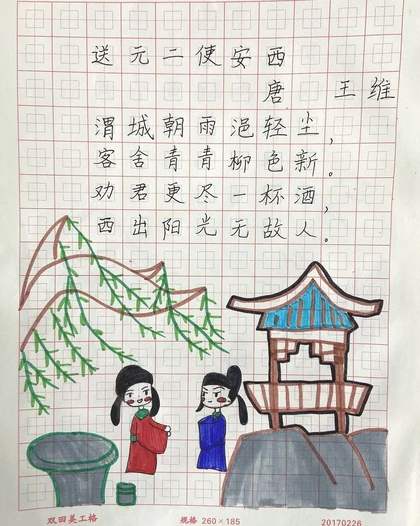 送元二使安西
唐 王维
渭城朝雨浥轻尘，
客舍青青柳色新。
劝君更尽一杯酒，
西出阳光无故人。
双田美工格 规格 260×185 20170226